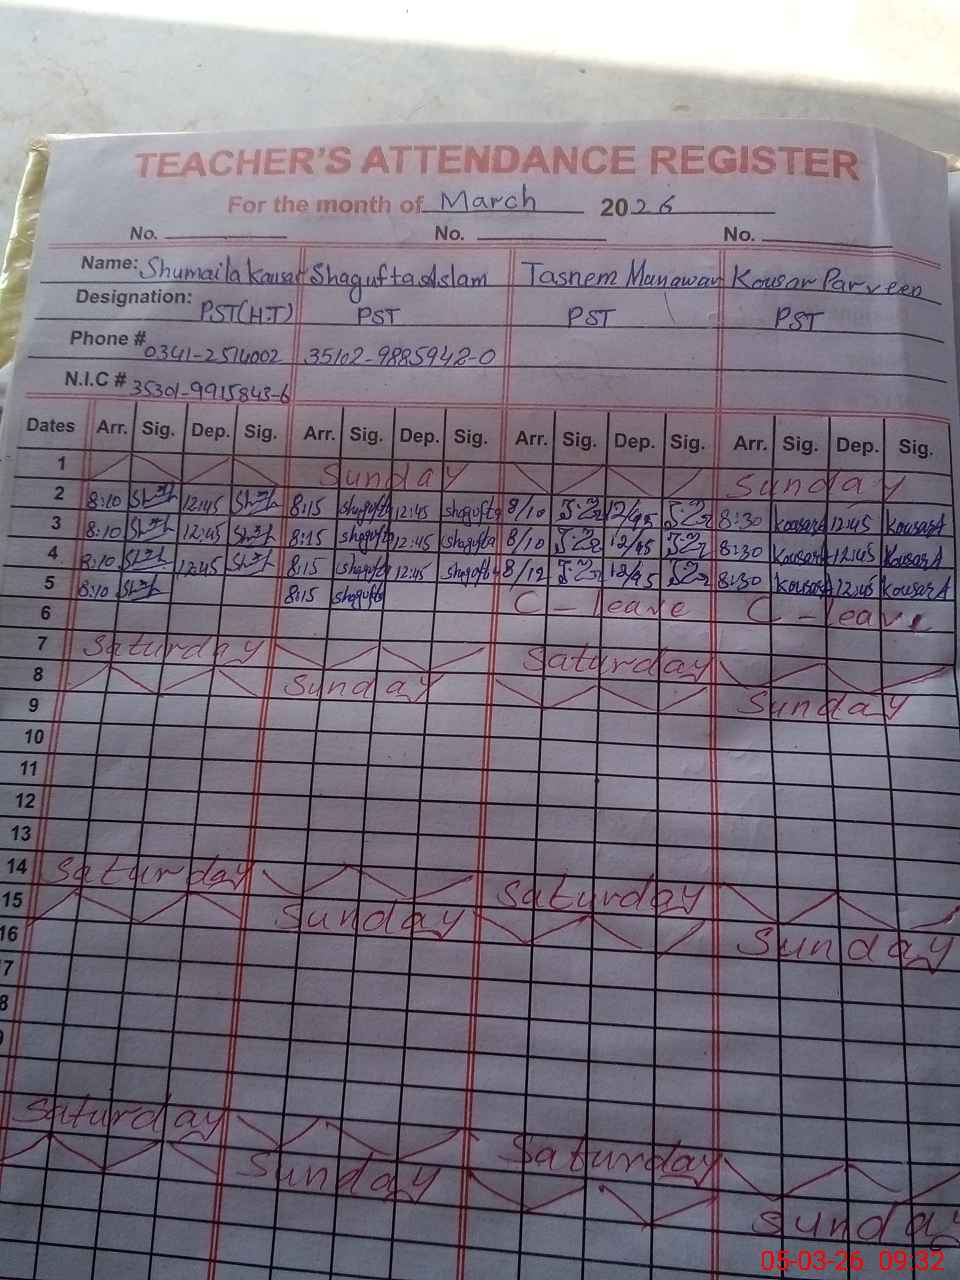 TEACHER'S ATTENDANCE REGISTER
For the month of March 2026
No. No. No.
Name: Shumaila Kausar Shagufta Aslam Tasnem Munawar Kousar Parveen
Designation: PST(H.T) PST PST PST
Phone # 0341-2514002 35102-9885942-0
N.I.C # 35301-9915843-6
Dates Arr. Sig. Dep. Sig. Arr. Sig. Dep. Sig. Arr. Sig. Dep. Sig. Arr. Sig. Dep. Sig.
1 Sunday Sunday
2 8:10 12:45 8:15 shagufta 12:45 shagufta 8/10 12/45 8:30 KousarA 12:45 KousarA
3 8:10 12:45 8:15 shagufta 12:45 shagufta 8/10 12/45 8:30 KousarA 12:45 KousarA
4 8:10 12:45 8:15 shagufta 12:45 shagufta 8/12 12/45 8:30 KousarA 12:45 KousarA
5 8:10 8:15 shagufta C - leave C - leave
6
7 Saturday Saturday
8 Sunday Sunday
9
10
11
12
13
14 Saturday Saturday
15 Sunday Sunday
16
7
8
Saturday Saturday
Sunday Sunday
05-03-26 09:32